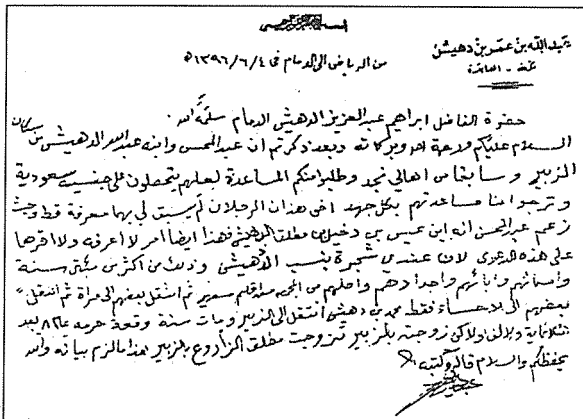 بسم الله الرحمن الرحيم
عبدالله بن عمر بن دهيش
مكة -
من الرياض الى الدمام في ١٣٩٦/٦/٤ ه
حضرة الفاضل ابراهيم عبدالعزيز الدهيش الدمام سلمه الله
السلام عليكم ورحمة الله وبركاته وبعد ذكرتم ان عبدالمحسن وابنه عبدالله الدهيش من سكان
الزبير وسابقا من اهالي نجد وطلبوا منكم المساعدة لعلهم يتحصلون على جنسية سعودية
وترجوا منا مساعدتهم بكل جهد اخي هذان الرجلان لم يسبق لي بهما معرفة قط وحيث
زعم عبدالمحسن انه ابن عيسى بن دخيل بن مطلق الدهيش فهذا ايضا امر لا اعرفه ولا اقرها
على هذه الدعوى لان عندي شجرة بنسب الدهيش وذلك من اكثر من مئتين سنة
واسمائهم وابائهم واجدادهم واصلهم من المجمعة سدير ثم انتقل بعضهم الى ثم انتقل
بعضهم الى الاحساء فقط محمد بن دهيش انتقل الى الزبير ومات سنة وقعة حرمه بعد
ولاكن زوجته بالزبير تزوجت مطلق الزاروع بالزبير هذا مالزم بيانه والله
يحفظكم والسلام قاله وكتبه